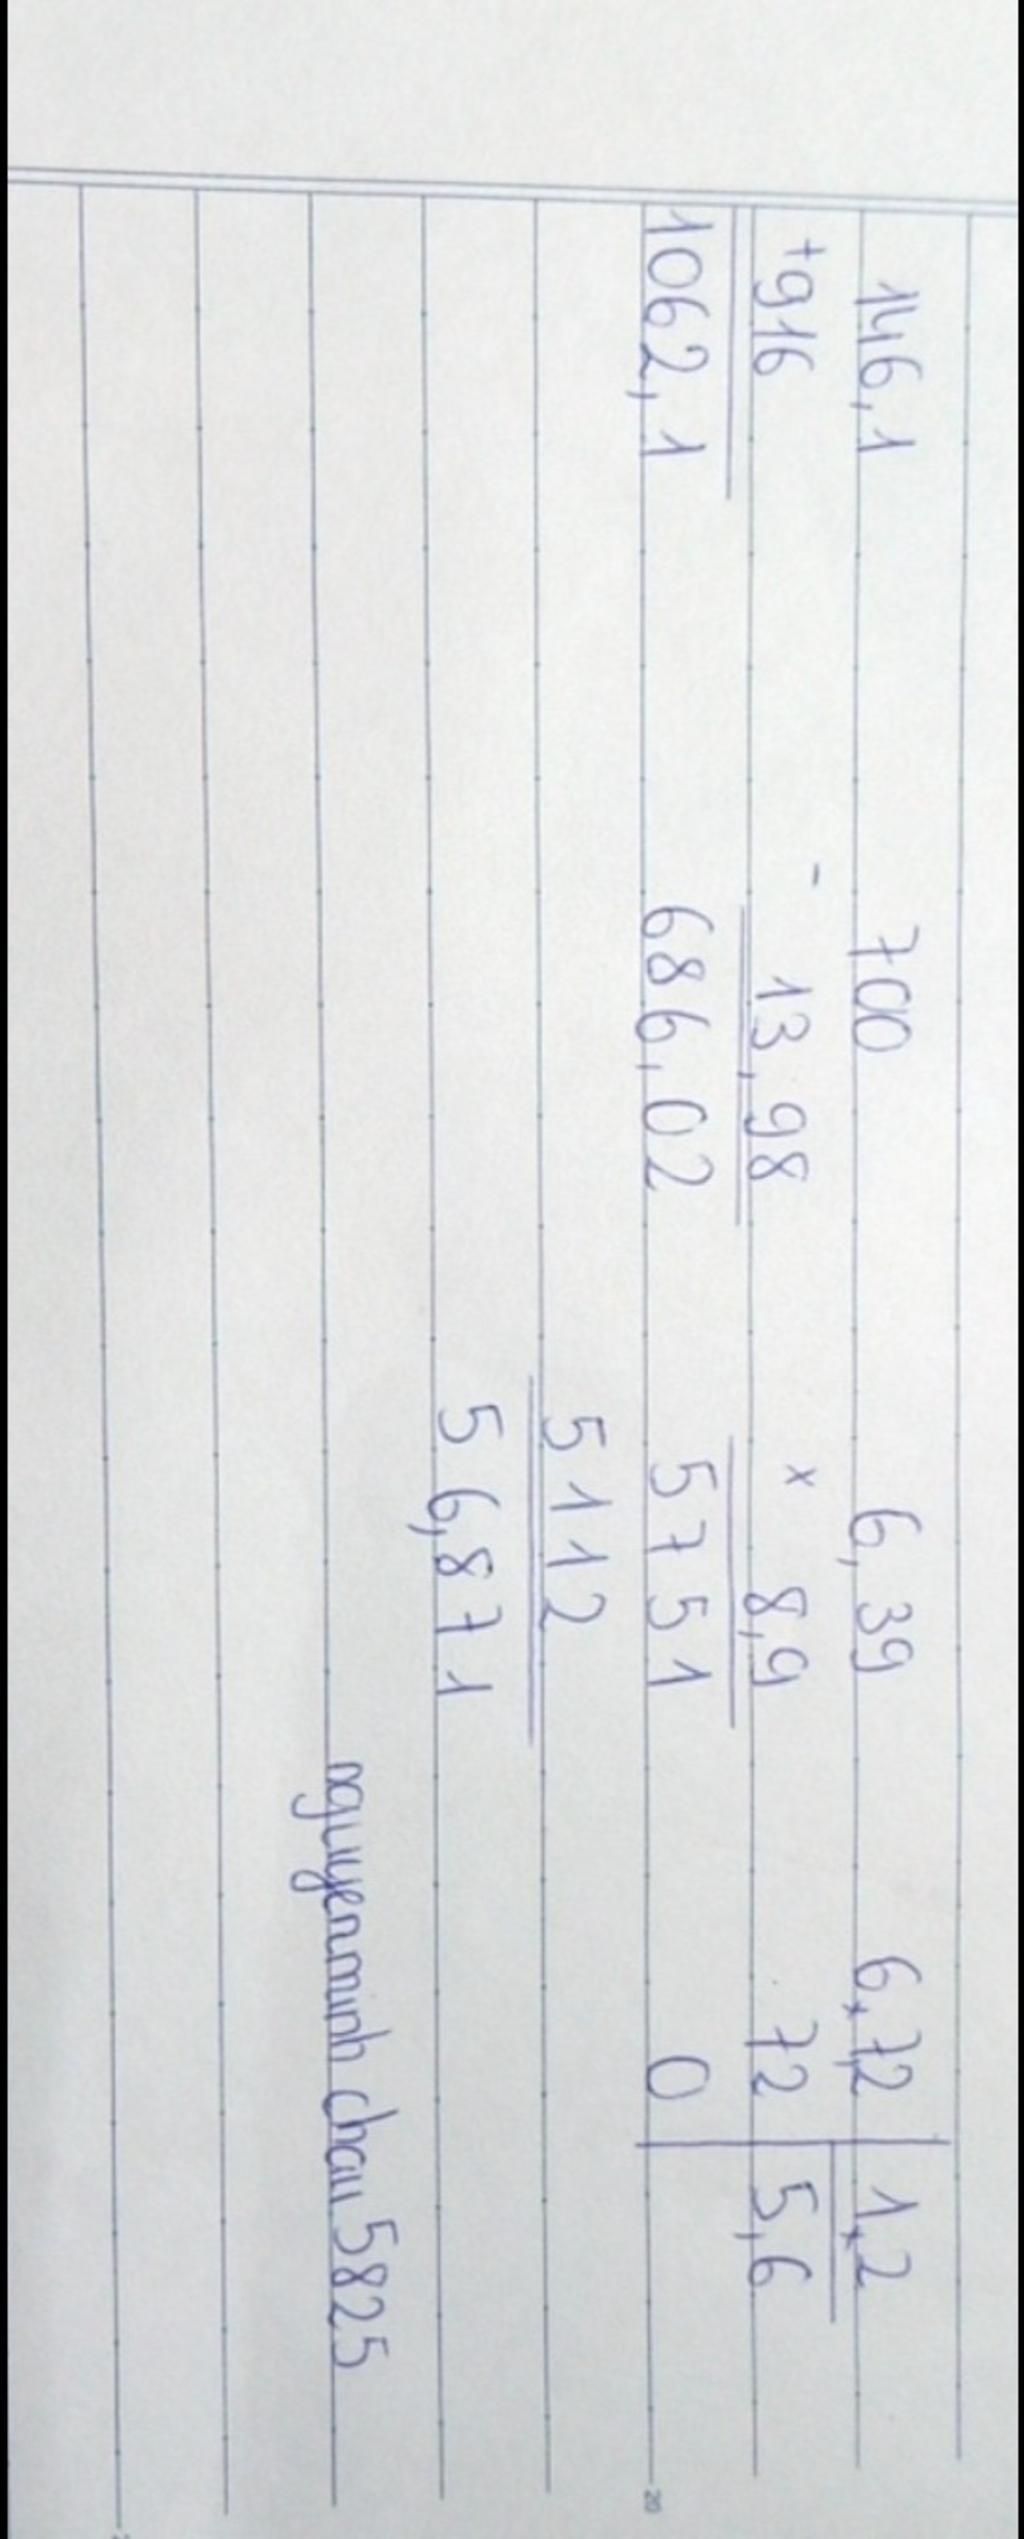 146,1 700 6,39 6,72 1,2
+ 916 - 13,98 x 8,9 72 5,6
1062,1 686,02 5751 0
5112
56,871
nguyenminh chau 5825
20